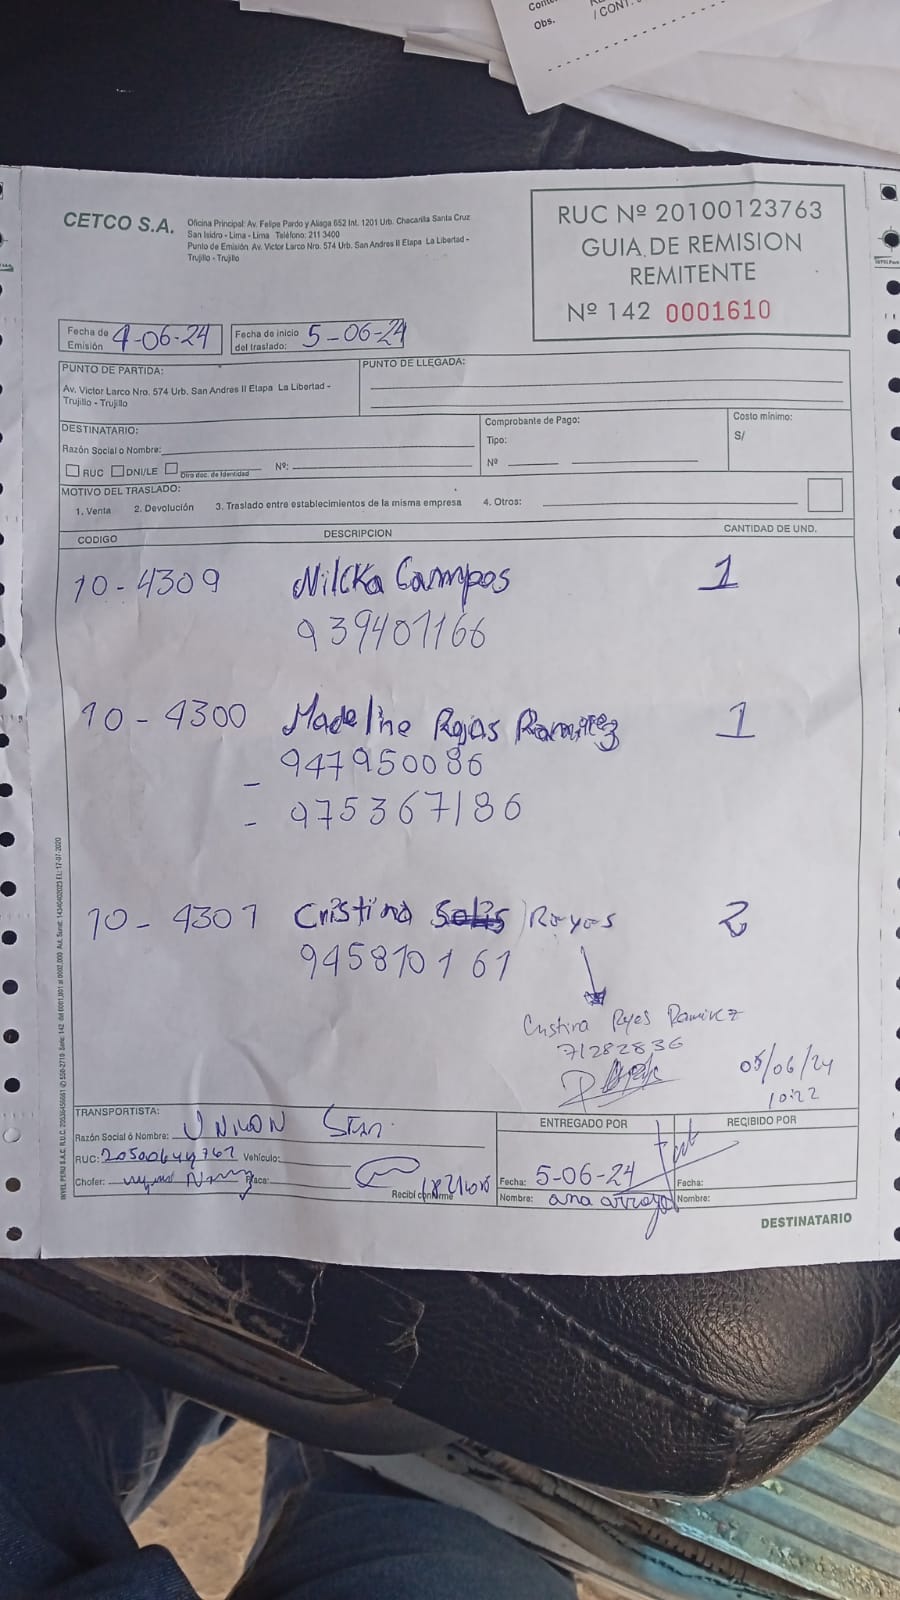 Obs.
/ CONT.
CETCO S.A.
Oficina Principal: Av. Felipe Pardo y Aliaga 652 Int. 1201 Urb. Chacarilla Santa Cruz
San Isidro - Lima - Lima Teléfono: 211 3400
Punto de Emisión: Av. Victor Larco Nro. 574 Urb. San Andres II Etapa La Libertad -
Trujillo - Trujillo
RUC Nº 20100123763
GUIA DE REMISION
REMITENTE
Nº 142 0001610
Fecha de Emisión 4-06-24
Fecha de inicio del traslado: 5-06-24
PUNTO DE PARTIDA:
Av. Victor Larco Nro. 574 Urb. San Andres II Etapa La Libertad -
Trujillo - Trujillo
PUNTO DE LLEGADA:
DESTINATARIO:
Razón Social o Nombre:
RUC DNI/LE Otro doc. de Identidad Nº:
Comprobante de Pago:
Tipo:
Nº
Costo mínimo:
S/
MOTIVO DEL TRASLADO:
1. Venta 2. Devolución 3. Traslado entre establecimientos de la misma empresa 4. Otros:
CODIGO DESCRIPCION CANTIDAD DE UND.
10-4309 Nilcka Campos 1
939401166
10-4300 Madeline Rojas Ramirez 1
- 947950086
- 975367186
10-4301 Cristina Solis Reyes 2
945810161
Cristina Reyes Ramirez
71282836
05/06/24
10:22
TRANSPORTISTA:
Razón Social ó Nombre: UNION Star
RUC: 20500649762 Vehículo:
Chofer: Placa:
Recibí conforme
ENTREGADO POR
Fecha: 5-06-24
Nombre: ana arroyo
RECIBIDO POR
Fecha:
Nombre:
DESTINATARIO